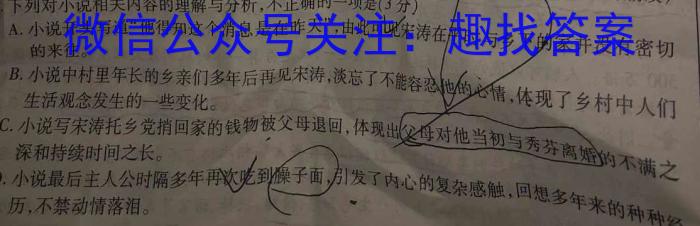 下列对小说相关内容的理解与分析,不正确的一项是(3分)
微信公众号关注:趣找答案
A.小说 他得知这个消息是在昨天,由此可见宋涛在 与乡 的 密切
的来往。
B.小说中村里年长的乡亲们多年后再见宋涛,淡忘了不能容忍他的心情,体现了乡村中人们
生活观念发生的一些变化。
C.小说写宋涛托乡党捎回家的钱物被父母退回,体现出父母对他当初与秀芬离婚的不满之
深和持续时间之长。
.小说最后主人公时隔多年再次吃到臊子面,引发了内心的复杂感触,回想多年来的种种经
历,不禁动情落泪。